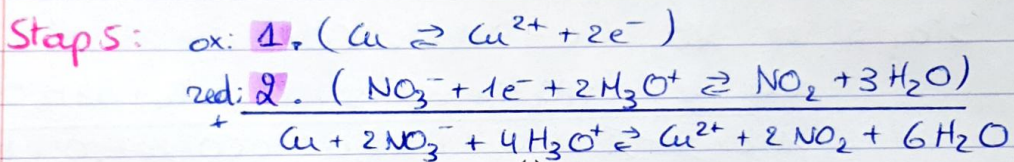 Stap 5: ox: 1. (Cu ⇄ Cu²⁺ + 2e⁻)
red: 2. (NO₃⁻ + 1e⁻ + 2H₃O⁺ ⇄ NO₂ + 3H₂O)
+
Cu + 2NO₃⁻ + 4H₃O⁺ ⇄ Cu²⁺ + 2NO₂ + 6H₂O